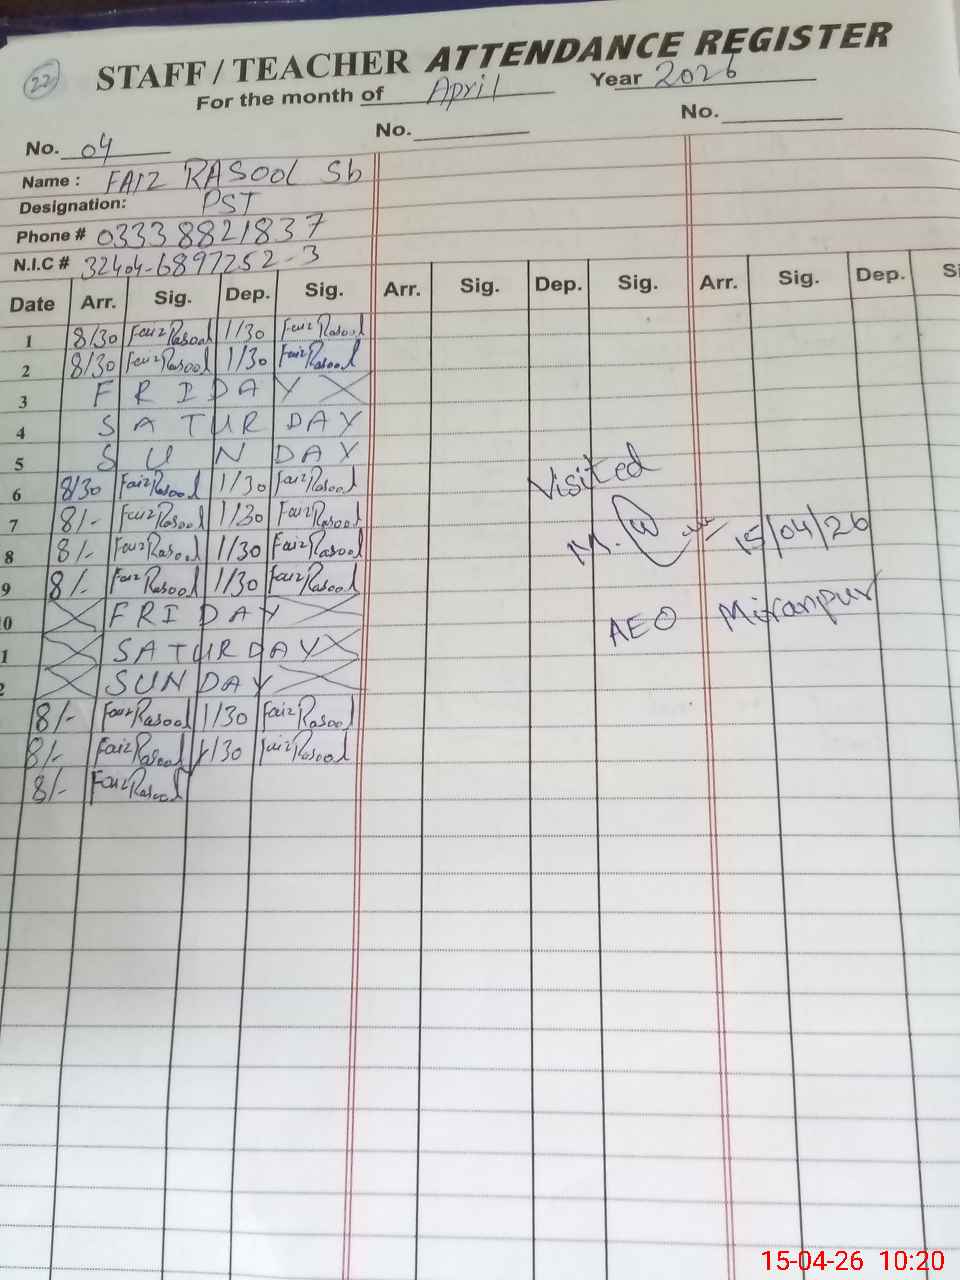 22
STAFF / TEACHER ATTENDANCE REGISTER
For the month of April Year 2026
No. 04 No. No.
Name : FAIZ RASOOL Sb
Designation: PST
Phone # 03338821837
N.I.C # 32404-6897252-3
Date Arr. Sig. Dep. Sig. Arr. Sig. Dep. Sig. Arr. Sig. Dep. Si
1 8/30 FaizRasool 1/30 FaizRasool
2 8/30 FaizRasool 1/30 FaizRasool
3 FRIDAY
4 SATURDAY
5 SUNDAY
6 8/30 FaizRasool 1/30 FaizRasool
7 8/- FaizRasool 1/30 FaizRasool
8 8/- FaizRasool 1/30 FaizRasool
9 8/- FaizRasool 1/30 FaizRasool
0 FRIDAY
1 SATURDAY
2 SUNDAY
8/- FaizRasool 1/30 FaizRasool
8/- FaizRasool 1/30 FaizRasool
8/- FaizRasool
Visited
15/04/26
AEO Miranpur
15-04-26 10:20